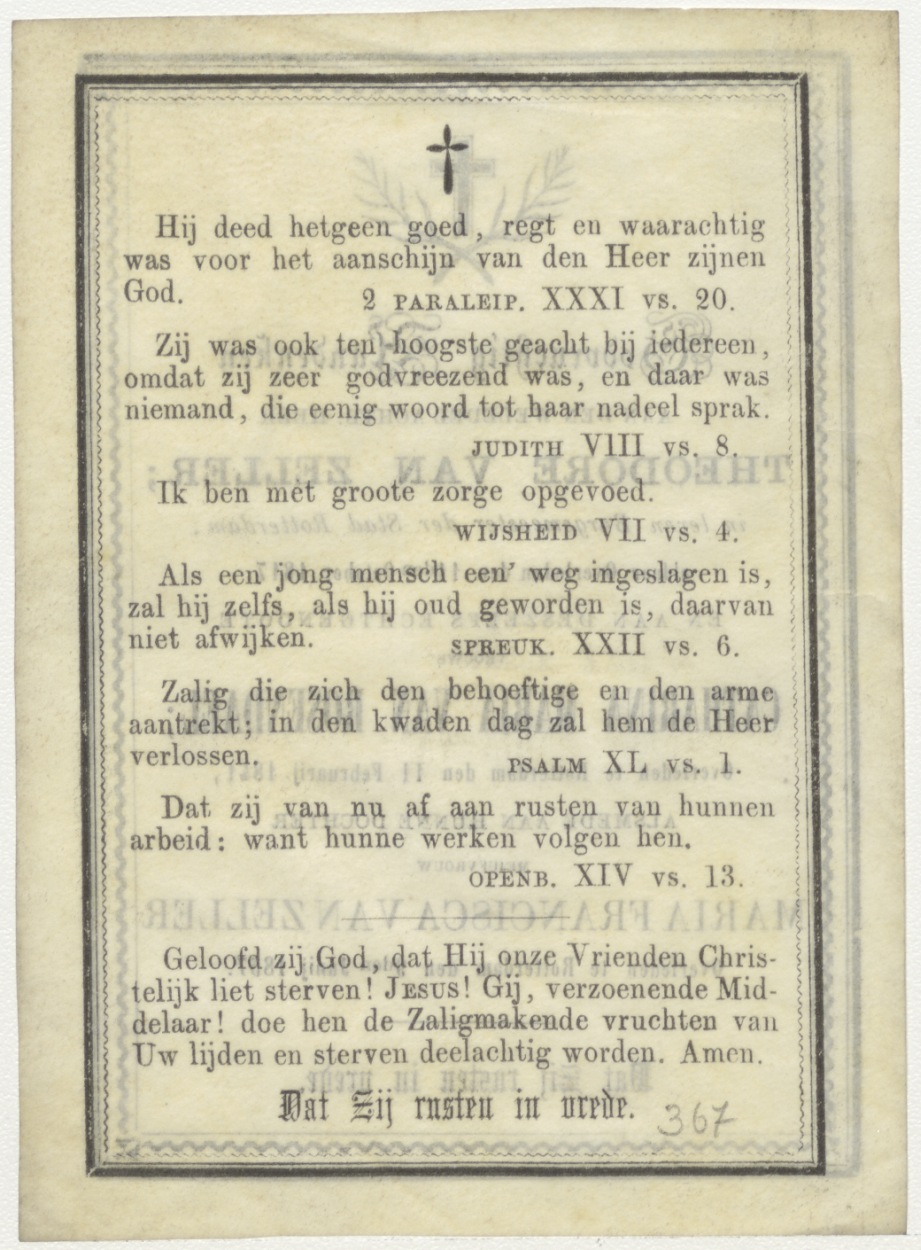 Hij deed hetgeen goed, regt en waarachtig
was voor het aanschijn van den Heer zijnen
God. 2 PARALEIP. XXXI vs. 20.
Zij was ook ten hoogste geacht bij iedereen,
omdat zij zeer godvreezend was, en daar was
niemand, die eenig woord tot haar nadeel sprak.
JUDITH VIII vs. 8.
Ik ben met groote zorge opgevoed.
WIJSHEID VII vs. 4.
Als een jong mensch een' weg ingeslagen is,
zal hij zelfs, als hij oud geworden is, daarvan
niet afwijken. SPREUK. XXII vs. 6.
Zalig die zich den behoeftige en den arme
aantrekt; in den kwaden dag zal hem de Heer
verlossen. PSALM XL vs. 1.
Dat zij van nu af aan rusten van hunnen
arbeid: want hunne werken volgen hen.
OPENB. XIV vs. 13.
Geloofd zij God, dat Hij onze Vrienden Chris-
telijk liet sterven! JESUS! Gij, verzoenende Mid-
delaar! doe hen de Zaligmakende vruchten van
Uw lijden en sterven deelachtig worden. Amen.
Dat Zij rusten in vrede.
367